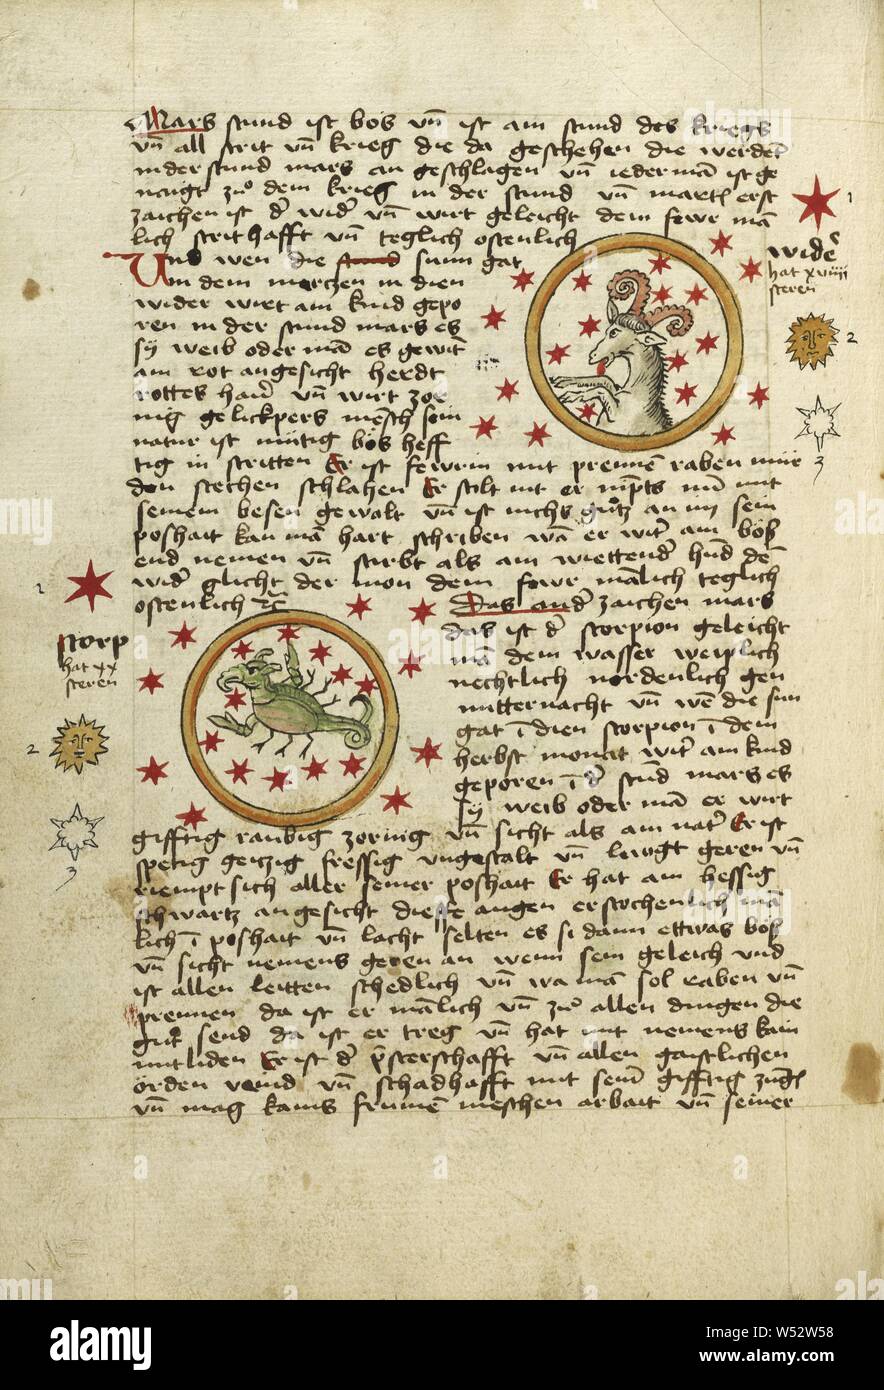 Mars stund ist bös vn̄ ist am stund des kriegs
vn̄ all strit vn̄ krieg die da geschehen die werdē
in der stund mars an geschlagen vn̄ ieder mā ist ge
naigt zuͦ dem krieg in der stund vn̄ mart erst
zaichen ist d' wid' vn̄ wirt geleicht dem fewr mā
lich strithafft vn̄ teglich ostenlich
Und wen die stund sunn gat
Um dem merczen in dien
wider wirt am kind gepo
ren in der stund mars es
sÿ weib oder mā es gewīt
am rot angesicht herdt
rottes har vn̄ wirt zor
nig gelickpers mēsch sein
natur ist mütig bös heff
tig in stritten Er ist fewrin mit prennē raben mür
den stechen schlahen Er stilt nit er nīpts nū mit
seinem besen gewalt vn̄ ist nichs gütz an im sein
poshait kan mā hart schriben wā er wir' am bös
end nemen vn̄ stirbt als am wiettend' hūd dē
wid' glicht der mon dem fewr mālich teglich
ostenlich
Das and' zaichen mars
das ist d' scorpion geleicht
mā dem wasser weiplich
nechtlich nordenlich gen
mitternacht vn̄ wē die sun
gat ī dien scorpion ī dem
herbst monat wir' am kind
geporen ī d' stūd mars es
sÿ weib oder mā er wirt
gifftig raubig zornig vn̄ sicht als am nat' Er ist
speiig geizig fressig vngestalt vn̄ leugt geren vn̄
riempt sich aller seiner poshait Er hat am hessig
schwartz angesicht dieffe augen erstochenlich mā
lich ī poshait vn̄ lacht selten es si dann ettwas bös
vn̄ sicht nemens geren an wenn sein geleich und
ist allen leitten schedlich vn̄ wa mā sol raben vn̄
prennen da ist er mālich vn̄ zuͦ allen dingen die
guͦt send da ist er treg vn̄ hat mit nemens kain
mitliden Er ist d' p̄sterschafft vn̄ allen gaistlichen
örden veind vn̄ schadhafft mit seim gifftig
vn̄ mag kains frumē meschen arbait vn̄ seiner
1
widē
hat xviiii
steren
2
3
1
scorp
hat xx
steren
2
3
alamy
Image ID: W52W58
www.alamy.com